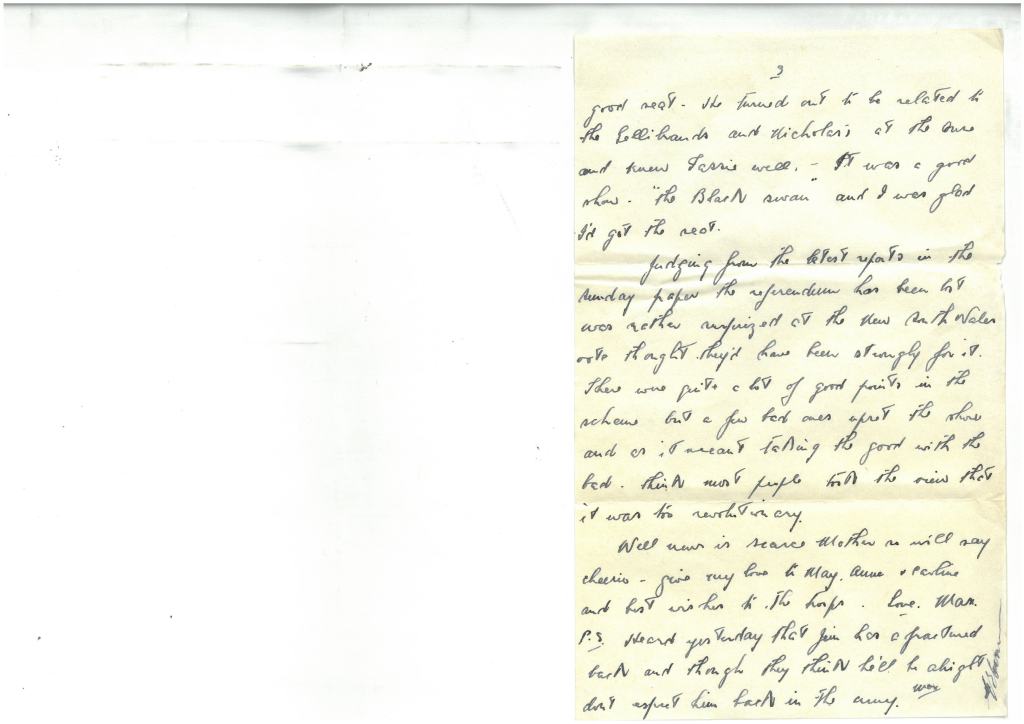 3
good seat - He turned out to be related to
the Gellibrands and Nicholas's at the
and knew Tassie well. - It was a good
show. "the Black swan" and I was glad
I'd got the seat.
Judging from the latest reports in the
Sunday paper the referendum has been lost
was rather surprized at the New South Wales
vote thought they'd have been strongly for it.
There were quite a lot of good points in the
scheme but a few bad ones upset the show
and as it meant taking the good with the
bad. think most people took the view that
it was too revolutionary.
Well news is scarce Mother so will say
cheerio - give my love to May, Anne &
and best wishes to the troops. Love. Max.
P.S. Heard yesterday that Jim has a fractured
back and though they think he'll be alright
don't expect him back in the army. Max